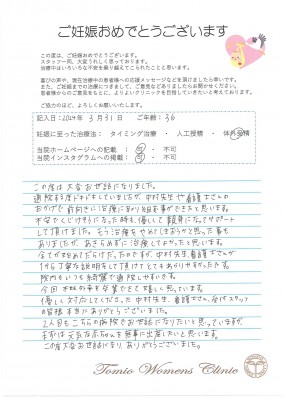 ご妊娠おめでとうございます
この度は、ご妊娠おめでとうございます。
スタッフ一同、大変うれしく思っております。
治療中はいろいろな不安を乗り越えてこられたことと思います。
喜びの声や、現在治療中の患者様への応援メッセージなどを頂けましたら幸いです。
また、ご妊娠までの治療につきまして、ご意見などありましたらお聞かせください。
患者様からのご意見をもとに、よりよいクリニックを目指していきたいと思います。
ご協力のほど、よろしくお願いいたします。
記入日：2024年 3月31日 ご年齢：36
妊娠に至った治療法： タイミング治療 ・ 人工授精 ・ 体外受精
当院ホームページへの記載 ： 可 ・ 不可
当院インスタグラムへの掲載 ： 可 ・ 不可
この度は大変お世話になりました。
通院する度ドキドキしていましたが、中村先生や看護士さんの
おかげで前向きに治療に取り組む事ができたと思います。
不安でくじけそうになった時も、優しく親身になってサポート
して頂けました。もう治療をやめてしまおうかと思った事も
ありましたが、あきらめずに治療してよかったと思います。
全てが初めてだらけだったのですが、中村先生、看護士さんが
いつも丁寧な説明をして頂けてとてもありがたかったです。
院内もいつも綺麗で通院しやすかったです。
今回、本院の事を卒業できて嬉しく思っています。
優しく対応してくださった中村先生、看護士さん、受付スタッフ
の皆様本当にありがとうございました。
2人目もこちらの病院でお世話になりたいと思っていますが、
まずは元気な赤ちゃんを無事に出産したいと思います。
この度大変お世話になり、ありがとうございました。
Tomio Womens Clinic